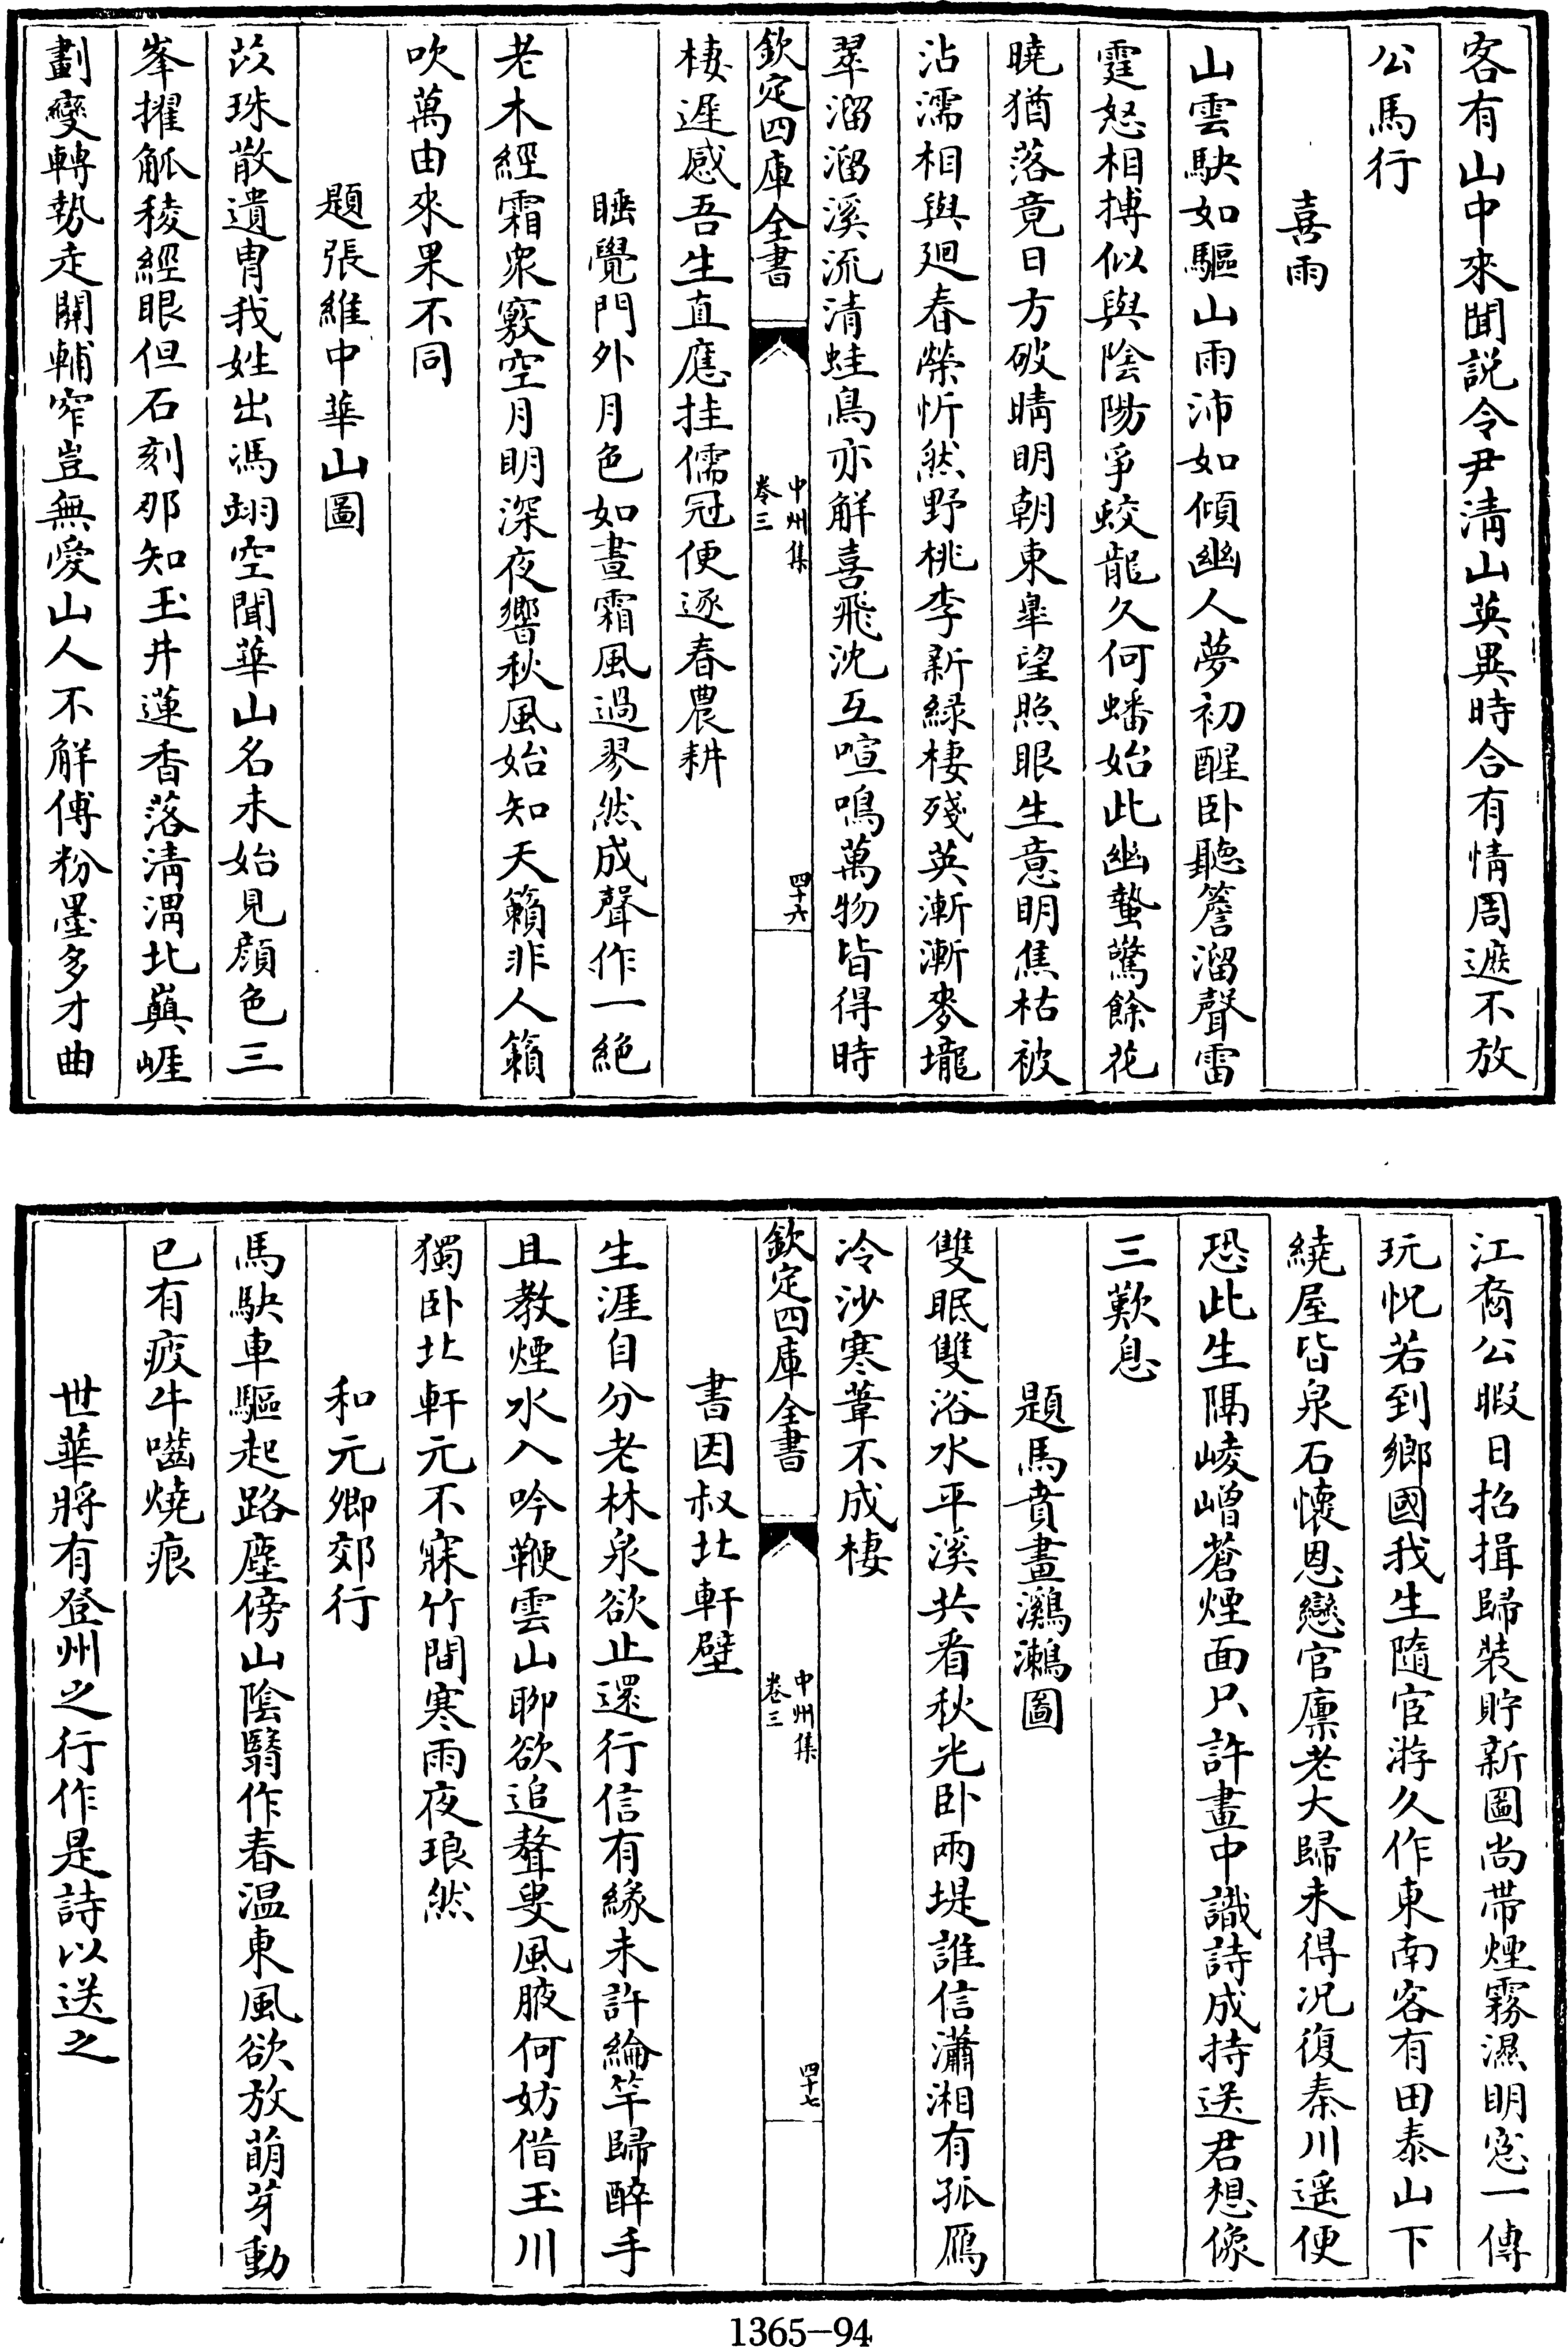 客有山中來聞説令尹清山英異時合有情周遮不放
公馬行
喜雨
山雲駃如驅山雨沛如傾幽人夢初醒卧聽簷溜聲雷
霆怒相搏似與陰陽爭蛟龍久何蟠始此幽蟄驚餘花
曉猶落竟日方破晴明朝東臯望照眼生意明焦枯被
沾濡相與廻春榮忻然野桃李新緑棲殘英漸漸麥壠
翠溜溜溪流清蛙鳥亦解喜飛沈互喧鳴萬物皆得時
欽定四庫全書
中州集
卷三
四十六
棲遲感吾生直應挂儒冠便逐春農耕
睡覺門外月色如晝霜風過翏然成聲作一絶
老木經霜衆竅空月明深夜響秋風始知天籟非人籟
吹萬由來果不同
題張維中華山圖
苡珠散遺胄我姓出馮翊空聞華山名未始見顔色三
峯擢觚稜經眼但石刻那知玉井蓮香落清渭北巔崕
劃變轉勢走關輔窄豈無愛山人不解傅粉墨多才曲
江裔公暇日招揖歸装貯新圖尚帶煙霧濕明窓一傳
玩怳若到鄉國我生隨宦游久作東南客有田泰山下
繞屋皆泉石懷恩戀官廪老大歸未得况復秦川遥便
恐此生隔崚嶒蒼煙面只許畫中識詩成持送君想像
三歎息
題馬賁畫鸂鶒圖
雙眠雙浴水平溪共看秋光卧兩堤誰信瀟湘有孤鴈
冷沙寒葦不成棲
欽定四庫全書
中州集
卷三
四十七
書因叔北軒壁
生涯自分老林泉欲止還行信有緣未許綸竿歸醉手
且教煙水入吟鞭雲山聊欲追聱叟風腋何妨借玉川
獨卧北軒元不寐竹間寒雨夜琅然
和元卿郊行
馬駃車驅起路塵傍山陰翳作春温東風欲放萌芽動
已有疲牛嚙燒痕
世華將有登州之行作是詩以送之
1365-94